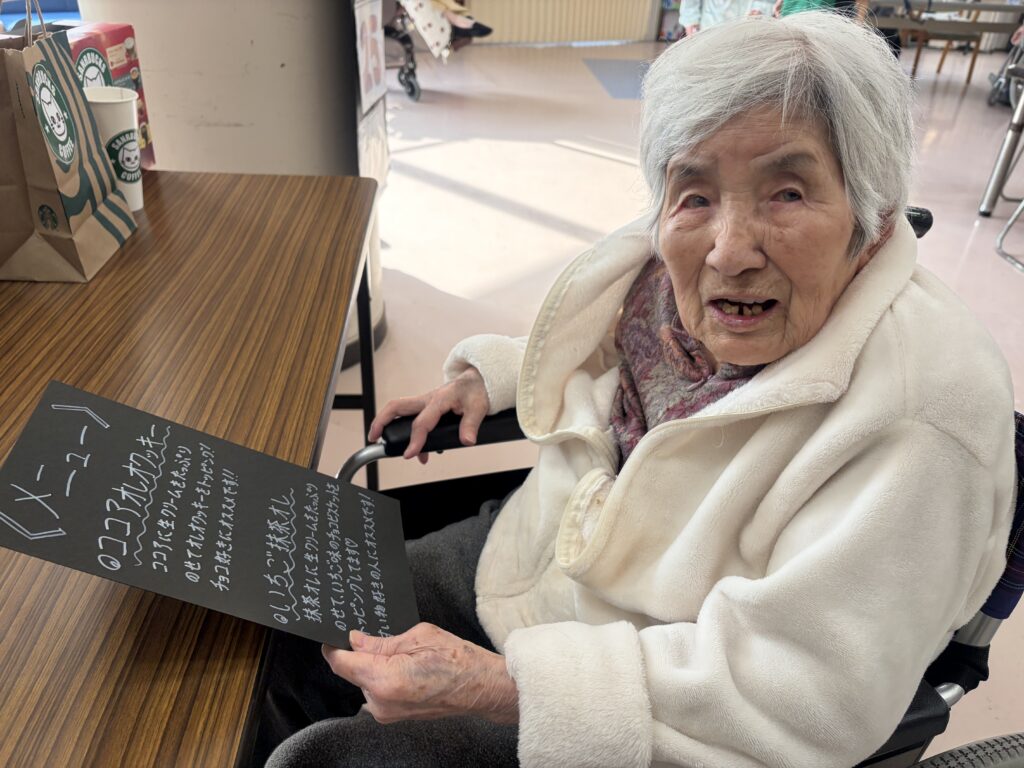 《メニュー》
ココアオレオクッキー
ココアに生クリームをたっぷり
のせてオレオクッキーをトッピング!
チョコ好きにオススメです!!
いちご抹茶オレ
抹茶オレに生クリームをたっぷり
のせていちご味のチョコビスケットを
トッピングしてます♡
甘い物好きの人にオススメです!
COFFEE
COFFEE